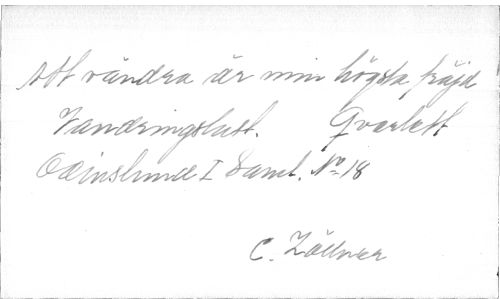 Att vandra är min högsta fröjd
Vandringslust. Qvartett
Odinslund I Saml. No 18
C. Zöllner